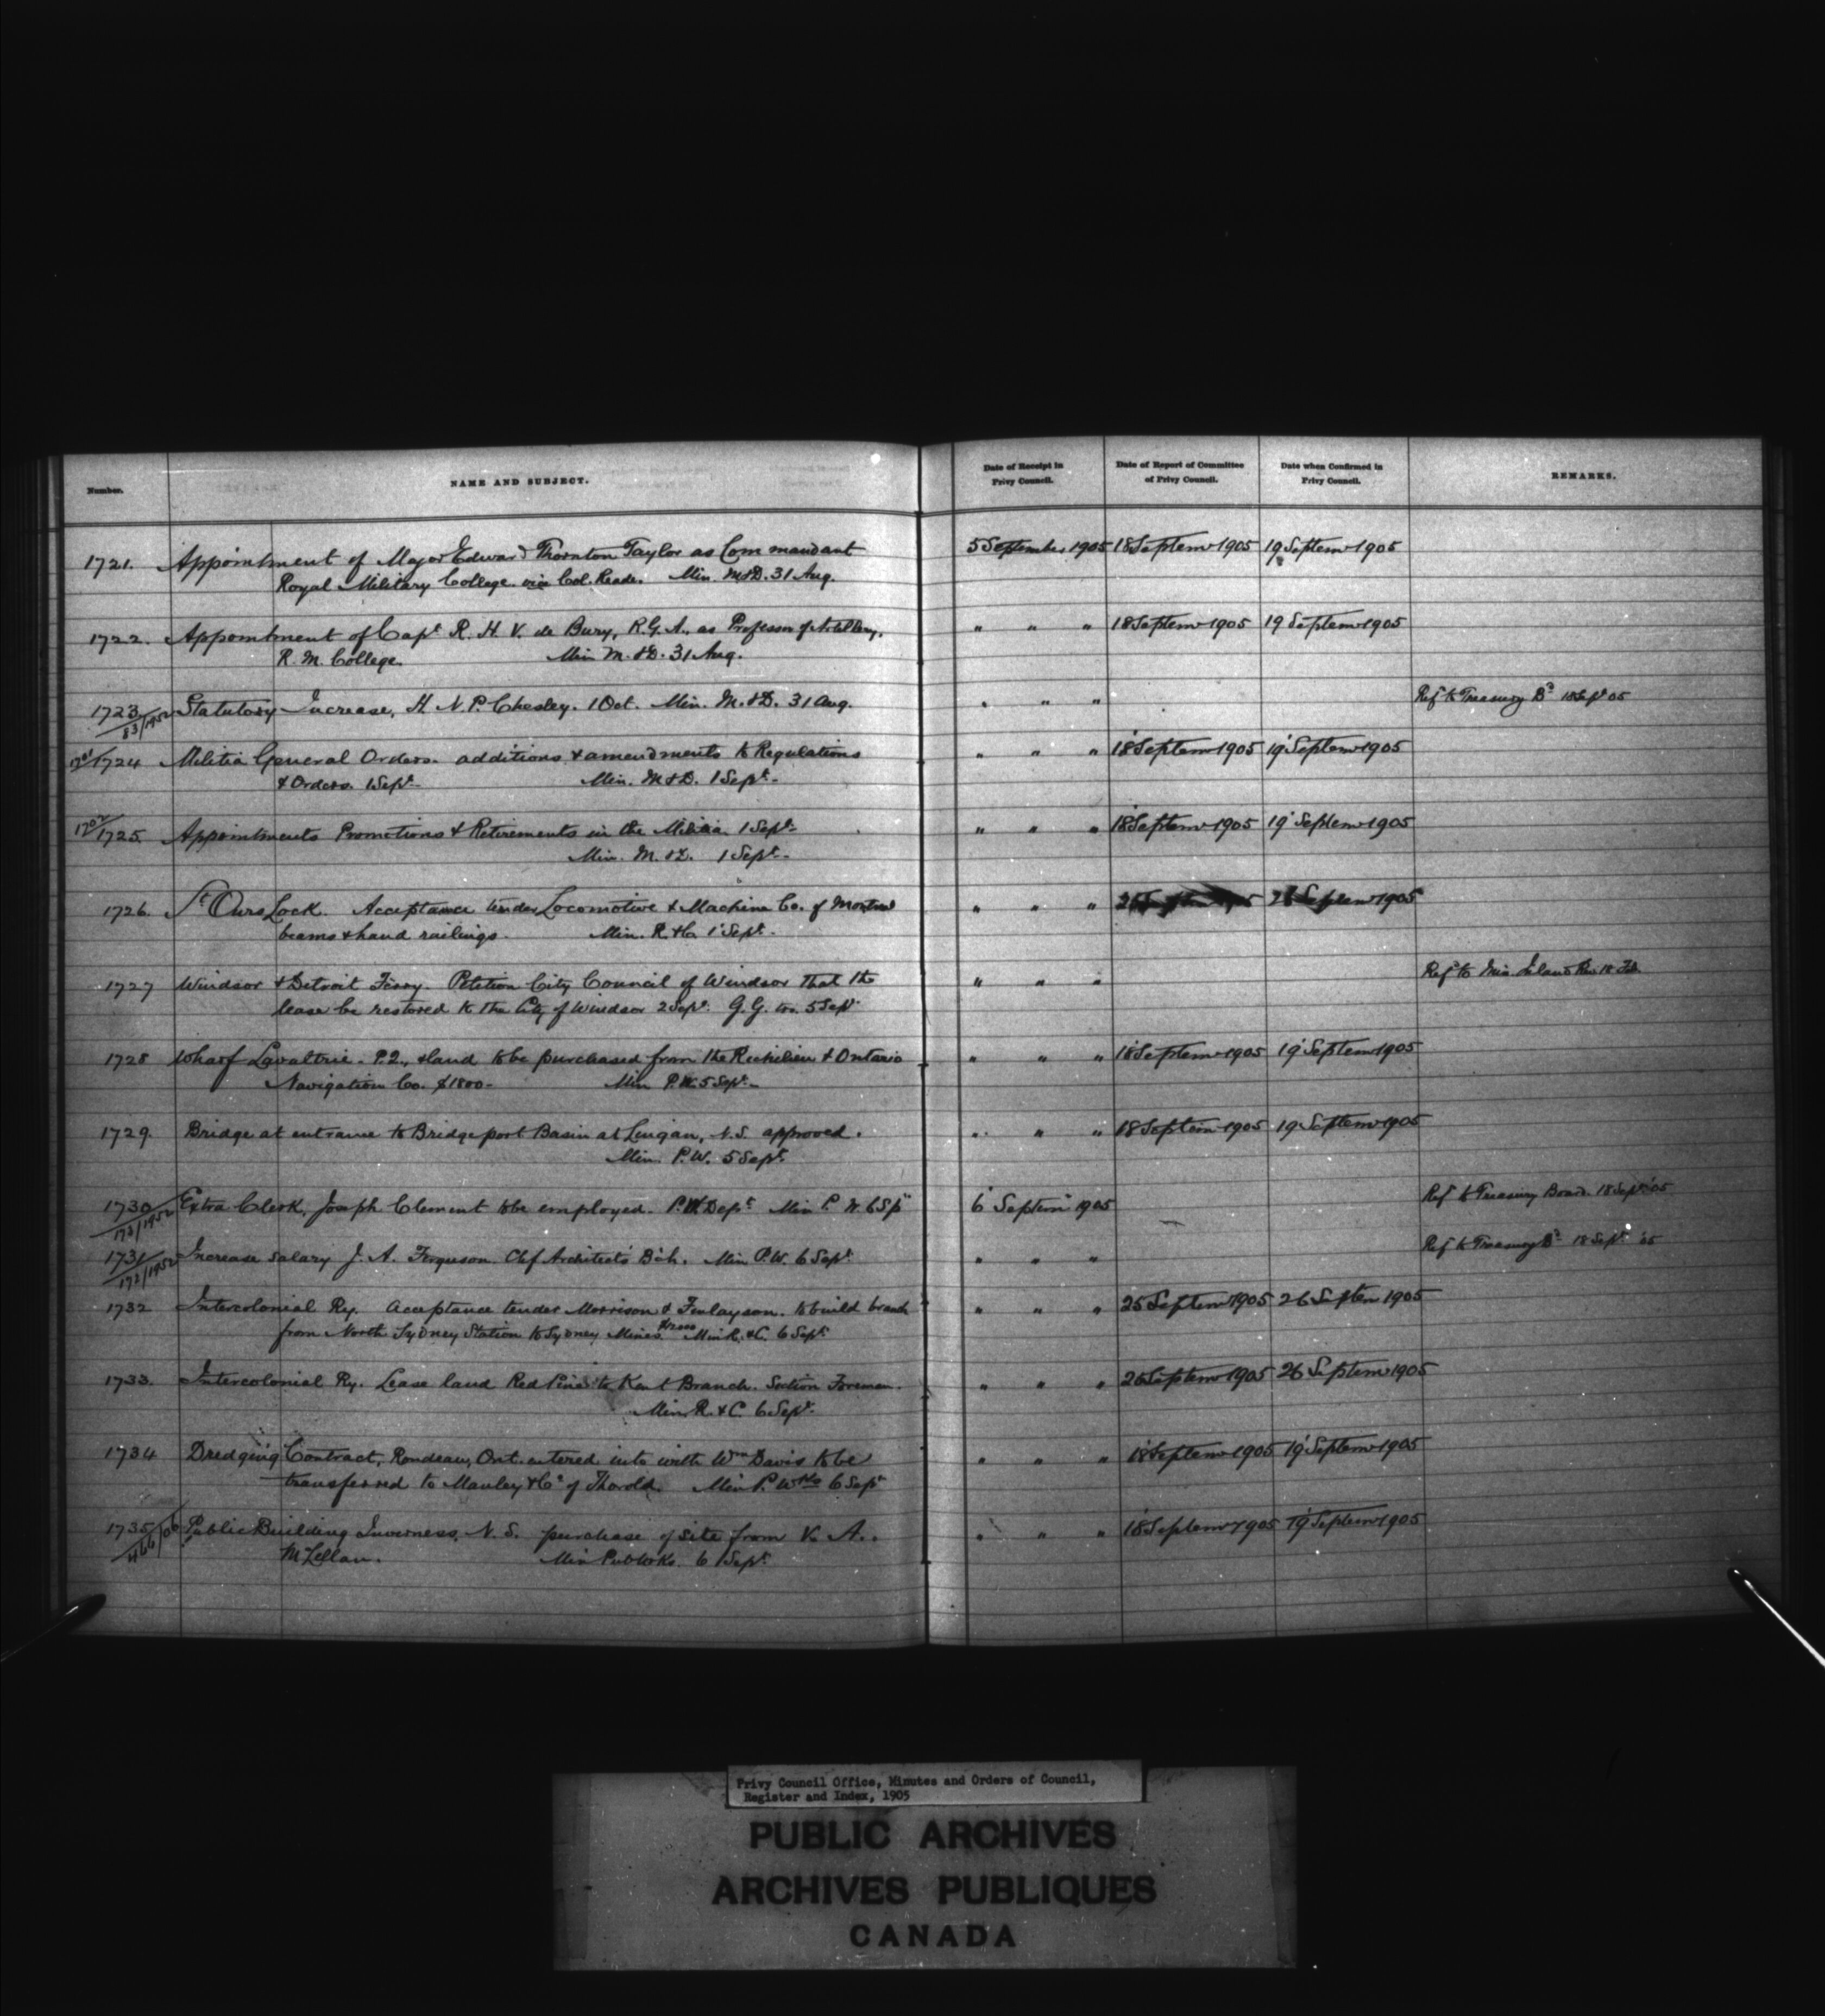 Number.
NAME AND SUBJECT.
Date of Receipt in Privy Council.
Date of Report of Committee of Privy Council.
Date when Confirmed in Privy Council.
REMARKS.
1721. Appointment of Major Edward Thornton Taylor as Commandant 5 September 1905 18 Septemr 1905 19 Septemr 1905
Royal Military College vice Col. Reade. Min. M&D. 31 Aug.
1722. Appointment of Capt R. H. V. de Bury, R.G.A., as Professor of Artillery, " " " 18 Septemr 1905 19 Septemr 1905
R. M. College. Min M. &D. 31 Aug.
1723 Statutory Increase, H. N. P. Chesley. 1 Oct. Min. M. &D. 31 Aug. " " " Ref to Treasury Bd 18 Sept 05
83/1952
1724 Militia General Orders. additions & amendments to Regulations " " " 18 Septemr 1905 19 Septemr 1905
& Orders. 1 Sept. Min. M&D. 1 Sept.
1702/1725. Appointments Promotions & Retirements in the Militia 1 Sept. " " " 18 Septemr 1905 19 Septemr 1905
Min. M. &D. 1 Sept.
1726. St Ours Lock. Acceptance tender Locomotive & Machine Co. of Montreal " " " 26 Septemr 1905
beams & hand railings. Min. R. &C. 1 Sept.
1727 Windsor & Detroit Ferry. Petition City Council of Windsor that the " " " Ref to Min. Inland Rev. 18
lease be restored to the City of Windsor 2 Sept. G.G. 5 Sept
1728 Wharf Lavaltrie. P.Q., & land to be purchased from the Richilieu & Ontario " " " 18 Septemr 1905 19 Septemr 1905
Navigation Co. $1800- Min P.W. 5 Sept.
1729. Bridge at entrance to Bridgeport Basin at Lingan, N.S. approved. " " " 18 Septem 1905 19 Septemr 1905
Min. P.W. 5 Sept.
1730 Extra Clerk, Joseph Clement to be employed. P.W. Dept Min P. W. 6 Sp 6 Septemr 1905 Ref to Treasury Board. 18 Sept 05
173/1952
1731 Increase salary J. A. Ferguson. Chf Architect's Bch. Min P.W. 6 Sept. " " " Ref to Treasury Bd 18 Sept. 05
172/1952
1732 Intercolonial Ry. Acceptance tender Morrison & Finlayson. to build branch " " " 25 Septemr 1905 26 Septem 1905
from North Sydney Station to Sydney Mines Min R. &C. 6 Sept.
1733. Intercolonial Ry. Lease land Red Pine to Kent Branch. Section Foreman. " " " 26 Septemr 1905 26 Septemr 1905
Min. R. &C. 6 Sept.
1734 Dredging Contract, Rondeau, Ont. entered into with Wm Davis to be " " " 18 Septemr 1905 19 Septemr 1905
transferred to Manley & Co of Thorold. Min P. Wks 6 Sept
1735 Public Building Inverness, N. S. purchase of site from V. A. " " " 18 Septemr 1905 19 Septemr 1905
466/06
McLellan. Min Pub Wks. 6 Sept.
Privy Council Office, Minutes and Orders of Council,
Register and Index, 1905
PUBLIC ARCHIVES
ARCHIVES PUBLIQUES
CANADA